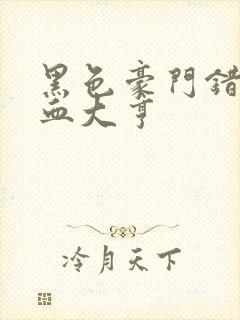 黑色豪門錯
血大亨
冷月天下